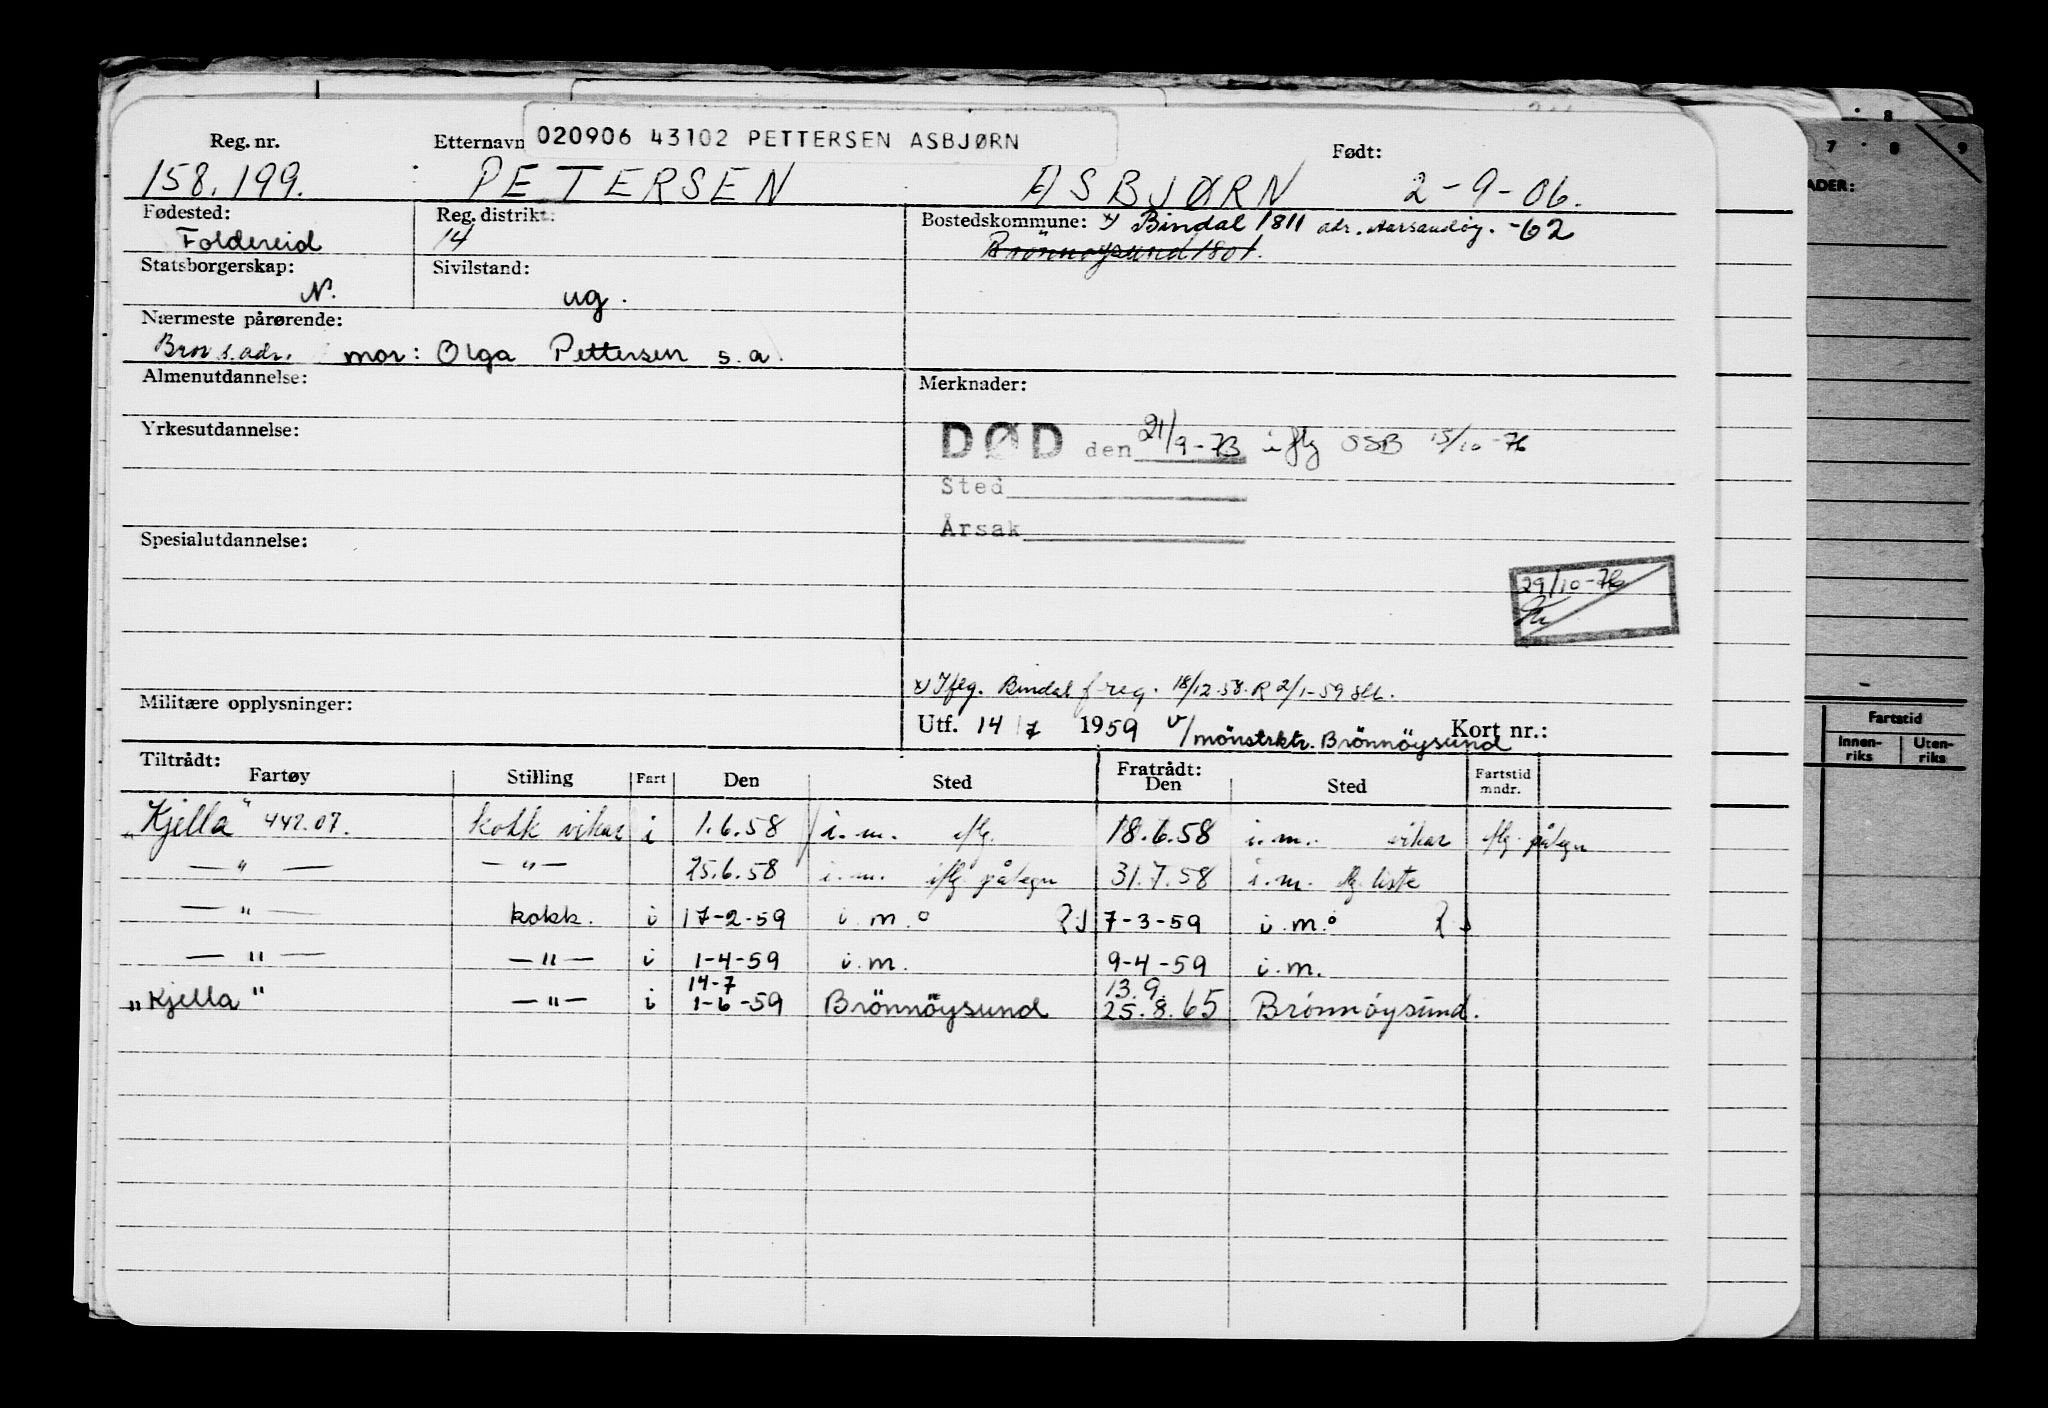 020906 43102 PETTERSEN ASBJØRN
Reg. nr. Etternavn Født:
158.199. PETERSEN ASBJØRN 2-9-06.
Fødested: Reg. distrikt: Bostedskommune: x) Bindal 1811 adr. Aarsandøy. -62
Foldereid 14 Brönnöysund 1801.
Statsborgerskap: Sivilstand:
N. ug.
Nærmeste pårørende:
Bror s. adr. mor: Olga Pettersen s.a.
Almenutdannelse: Merknader:
Yrkesutdannelse:
DØD den 21/9-73 iflg SSB 15/10-76
Sted
Årsak
Spesialutdannelse:
29/10-76
x) Iflg. Bindal f.reg. 18/12-58. R 2/1-59
Militære opplysninger:
Utf. 14/7 1959 v/mönstrktr. Brönnöysund Kort nr.:
Tiltrådt: Fratrådt:
Fartøy Stilling Fart Den Sted Den Sted Fartstid mndr.
"Kjella" 442.07. kokk vikar i 1.6.58 i.m. iflg. 18.6.58 i.m. vikar iflg påtegn
—"— —"— 25.6.58 i.m. iflg påtegn 31.7.58 i.m. iflg. liste
—"— kokk. i 17-2-59 i.m. 7-3-59 i.m.
—"— —"— i 1-4-59 i.m. 9-4-59 i.m.
14-7 13.9.
"Kjella" —"— i 1-6-59 Brönnöysund 25.8.65 Brönnöysund.
7 8 9
8
ADER:
Fartstid
Innen-riks Uten-riks